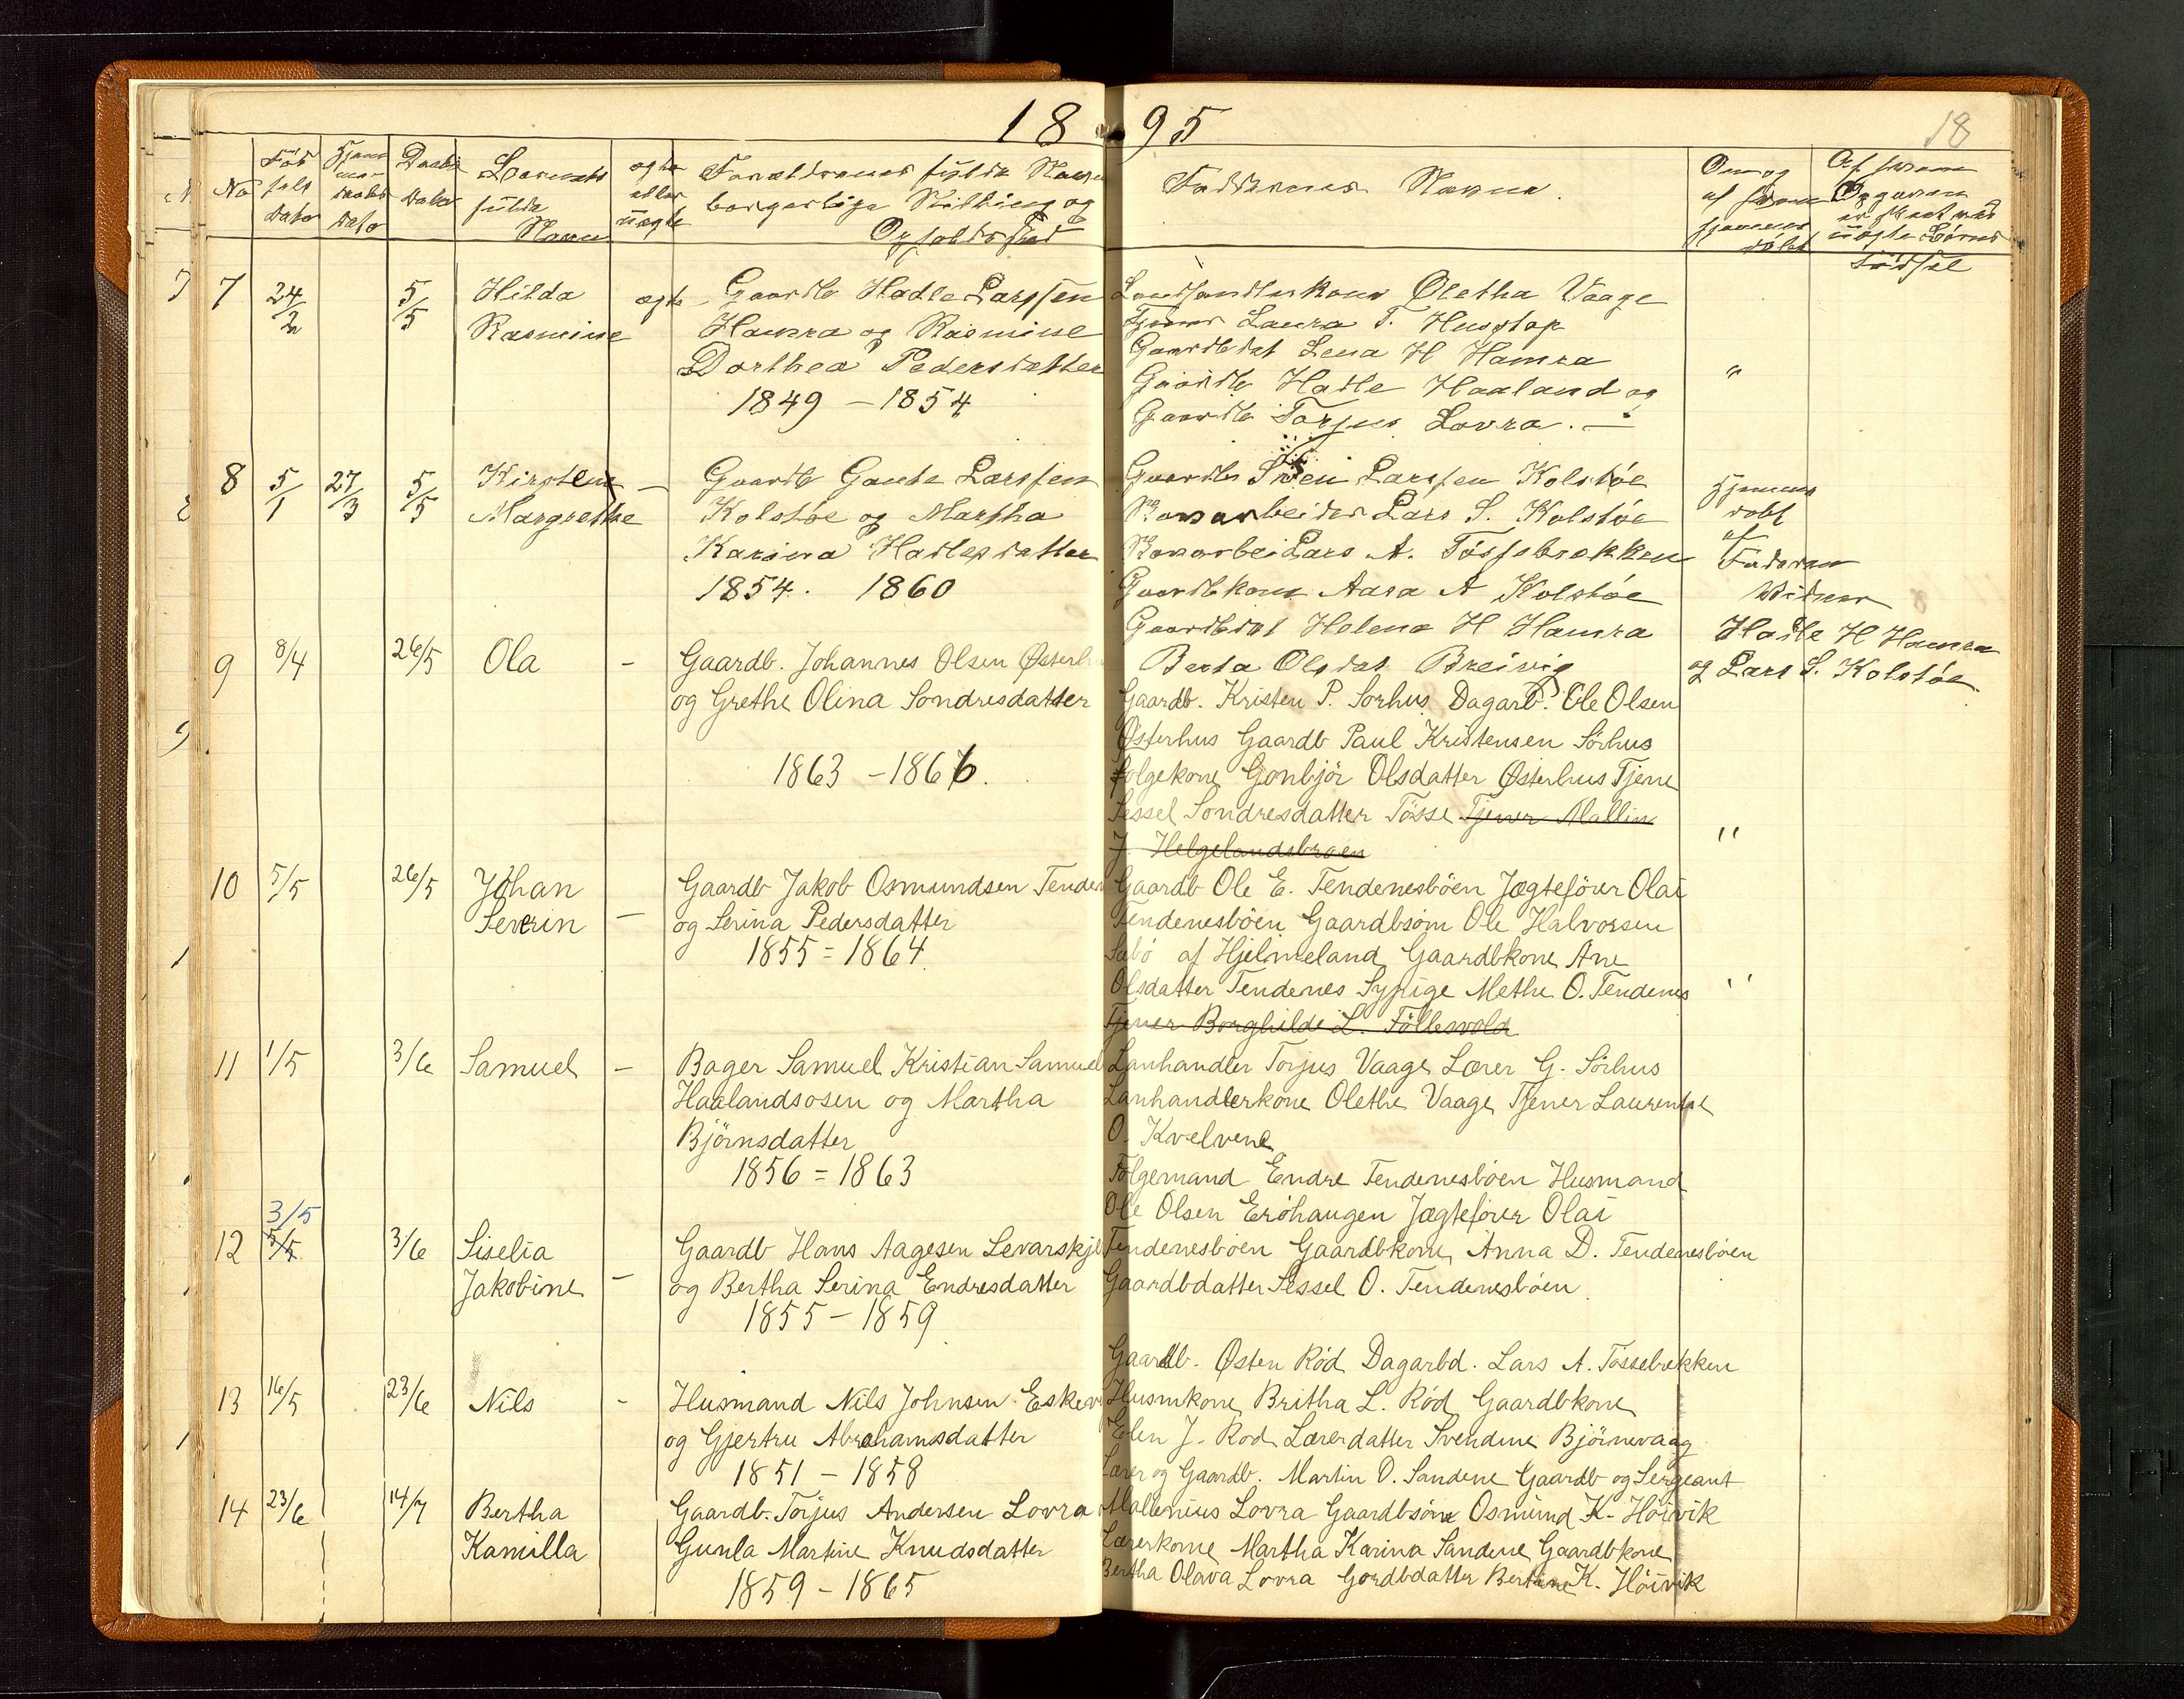 18 95
18
No
Fød
sels
Dato
Hjem
me-
daabs
Dato
Daabs
Dato
Barnets
fulde
Navn
ægte
eller
uægte
Forældrenes fulde Navn
borgerlige Stilling og
Opholdssted
Faddernes Navne.
Om og
af hvem
hjemme
døbt
Af hvem
Opgaven
er skeet ved
uægte Børns
Fødsel
7 24/2 5/5 Hilda ægte Gaardb Hadle Larssen
Rasmine Hamra og Rasmine
Dorthea Pedersdatter
1849 - 1854
Landhandlerkone Oletha Vaage
Tjener Laura T. Husstap
Gaardb dat Lena H Hamra
Gaardb Hadle Haaland og
Gaardb Torjus Lovra. -
"
8 5/1 27/3 5/5 Kirsten - Gaardb Gaute Larssen
Margrethe Kolstøe og Martha
Karina Hadlesdatter
1854. 1860
Gaardb Svein Larssen Kolstøe
Banearbeider Lars S. Kolstøe
Banearbei Lars A. Tøssebrekken
Gaardbkone Aasa A Kolstøe
Gaardbdat Helena H Hamra
Berta Olsdat Breivig
Hjemme
døbt
af
Faderen
Vidner
Hadle H Hamra
og Lars S. Kolstøe.
9 8/4 26/5 Ola - Gaardb. Johannes Olsen Østerh
og Grethe Olina Sondresdatter
1863 - 1866.
Gaardb. Kristen P. Sørhus Dagarb. Ole Olsen
Østerhus Gaardb Paul Kristensen Sørhus
Folgekone Gonbjör Olsdatter Østerhus Tjene
Sessel Sondresdatter Tösse Tjener Mallin
J. Helgelandsbraen
"
10 5/5 26/5 Johan Gaardb Jakob Osmundsen Tenden
Severin - og Serina Pedersdatter
1855 = 1864
Gaardb Ole E. Tendenesböen Jægteförer Olai
Tendenesböen Gaardbsöm Ole Halvorsen
Sæbö af Hjelmeland Gaardbkone Ane
Olsdatter Tendenes Sypige Methe O. Tendenes
Tjener Borghilde L. Föllesvold
"
11 1/5 3/6 Samuel - Bager Samuel Kristian Samuel
Haalandsosen og Martha
Björnsdatter
1856 = 1863
Lanhandler Torjus Vaage Lærer G. Sörhus
Lanhandlerkone Olethe Vaage Tjener Laurentse
O. Kvelvene
3/5
12 5/5 3/6 Siselia Gaardb Hans Aagesen Levarskj
Jakobine - og Bertha Serina Endresdatter
1855 - 1859
Folgemand Endre Tendenesböen Husmand
Ole Olsen Eröhaugen Jægteförer Olai
Tendenesböen Gaardbkone Anna D. Tendenesböen
Gaardbdatter Sessel O. Tendenesböen
13 16/5 23/6 Nils - Husmand Nils Johnsen Eskev
og Gjertru Abrahamsdatter
1851 - 1858
Gaardb. Østen Röd Dagarbd. Lars A. Tössebrekken
Husmkone Britha L. Röd Gaardbkone
Elen J. Rod Lærerdatter Svendine Björnevaag
14 23/6 14/7 Bertha Gaardb. Torjus Andersen Lovra
Kamilla Gunla Martine Knudsdatter
1859 - 1865
Lærer og Gaardb. Martin O. Sandene Gaardb og Sergeant
Mallenius Lovra Gaardbsöne Osmund K. Höivik
Lærerkone Martha Karina Sandene Gaardbkone
Bertha Olava Lovra Gordbdatter Bertine K. Höivik